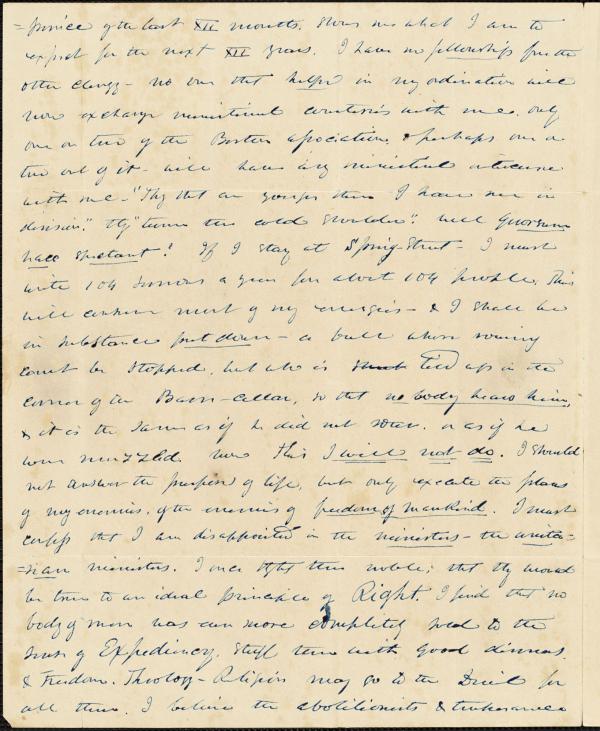 =perience of the last XII months. shows me what I am to
expect for the next XII years. I have no fellowship from the
other clergy - no one that helped in my ordination will
now exchange ministerial courtesies with me. only
one or two of the Boston association, & perhaps one or
two out of it - will have any ministerial intercourse
with me - "They that are younger than I have me in
derision." they "turn the cold shoulder". well quorsum
haec spectant? If I stay at Spring-Street - I must
write 104 sermons a year for about 104 people. This
will consume most of my energies - & I shall be
in substance put down - a bull whose roaring
can't be stopped, but who is tied up in the
corner of the Barn-cellar, so that nobody hears him,
& it is the same as if he did not roar. or as if he
were muzzled. Now this I will not do. I should
not answer the purpose of life, but only execute the plans
of my enemies, of the enemies of freedom of mankind. I must
confess that I am disappointed in the ministers - the unita=
=rian ministers. I once thgt them noble; that they would
be true to an ideal principle of Right. I find that no
body of men was ever more completely sold to the
sense of Expediency. Stuff them with good dinners.
& Freedom. Theology - Religion may go to the Devil for
all them. I believe the abolitionists & temperance